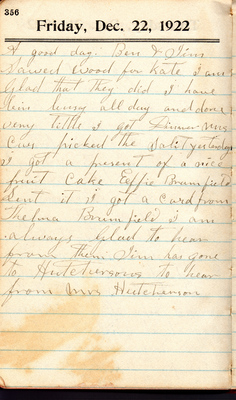 356
Friday, Dec. 22, 1922
A good day. Ben & Jim
Sawed wood for Kate I am
Glad that they did I have
bin busy all day and done
very little I got Dinner Mrs
picked the Salit yesterday
I got a present of a nice
fruit Cake Effie Brumfield
Sent it I got a card from
Thelma Brumfield I am
always Glad to hear
from them Jim has gone
to Hutchersons to hear
from Mrs Hutcherson